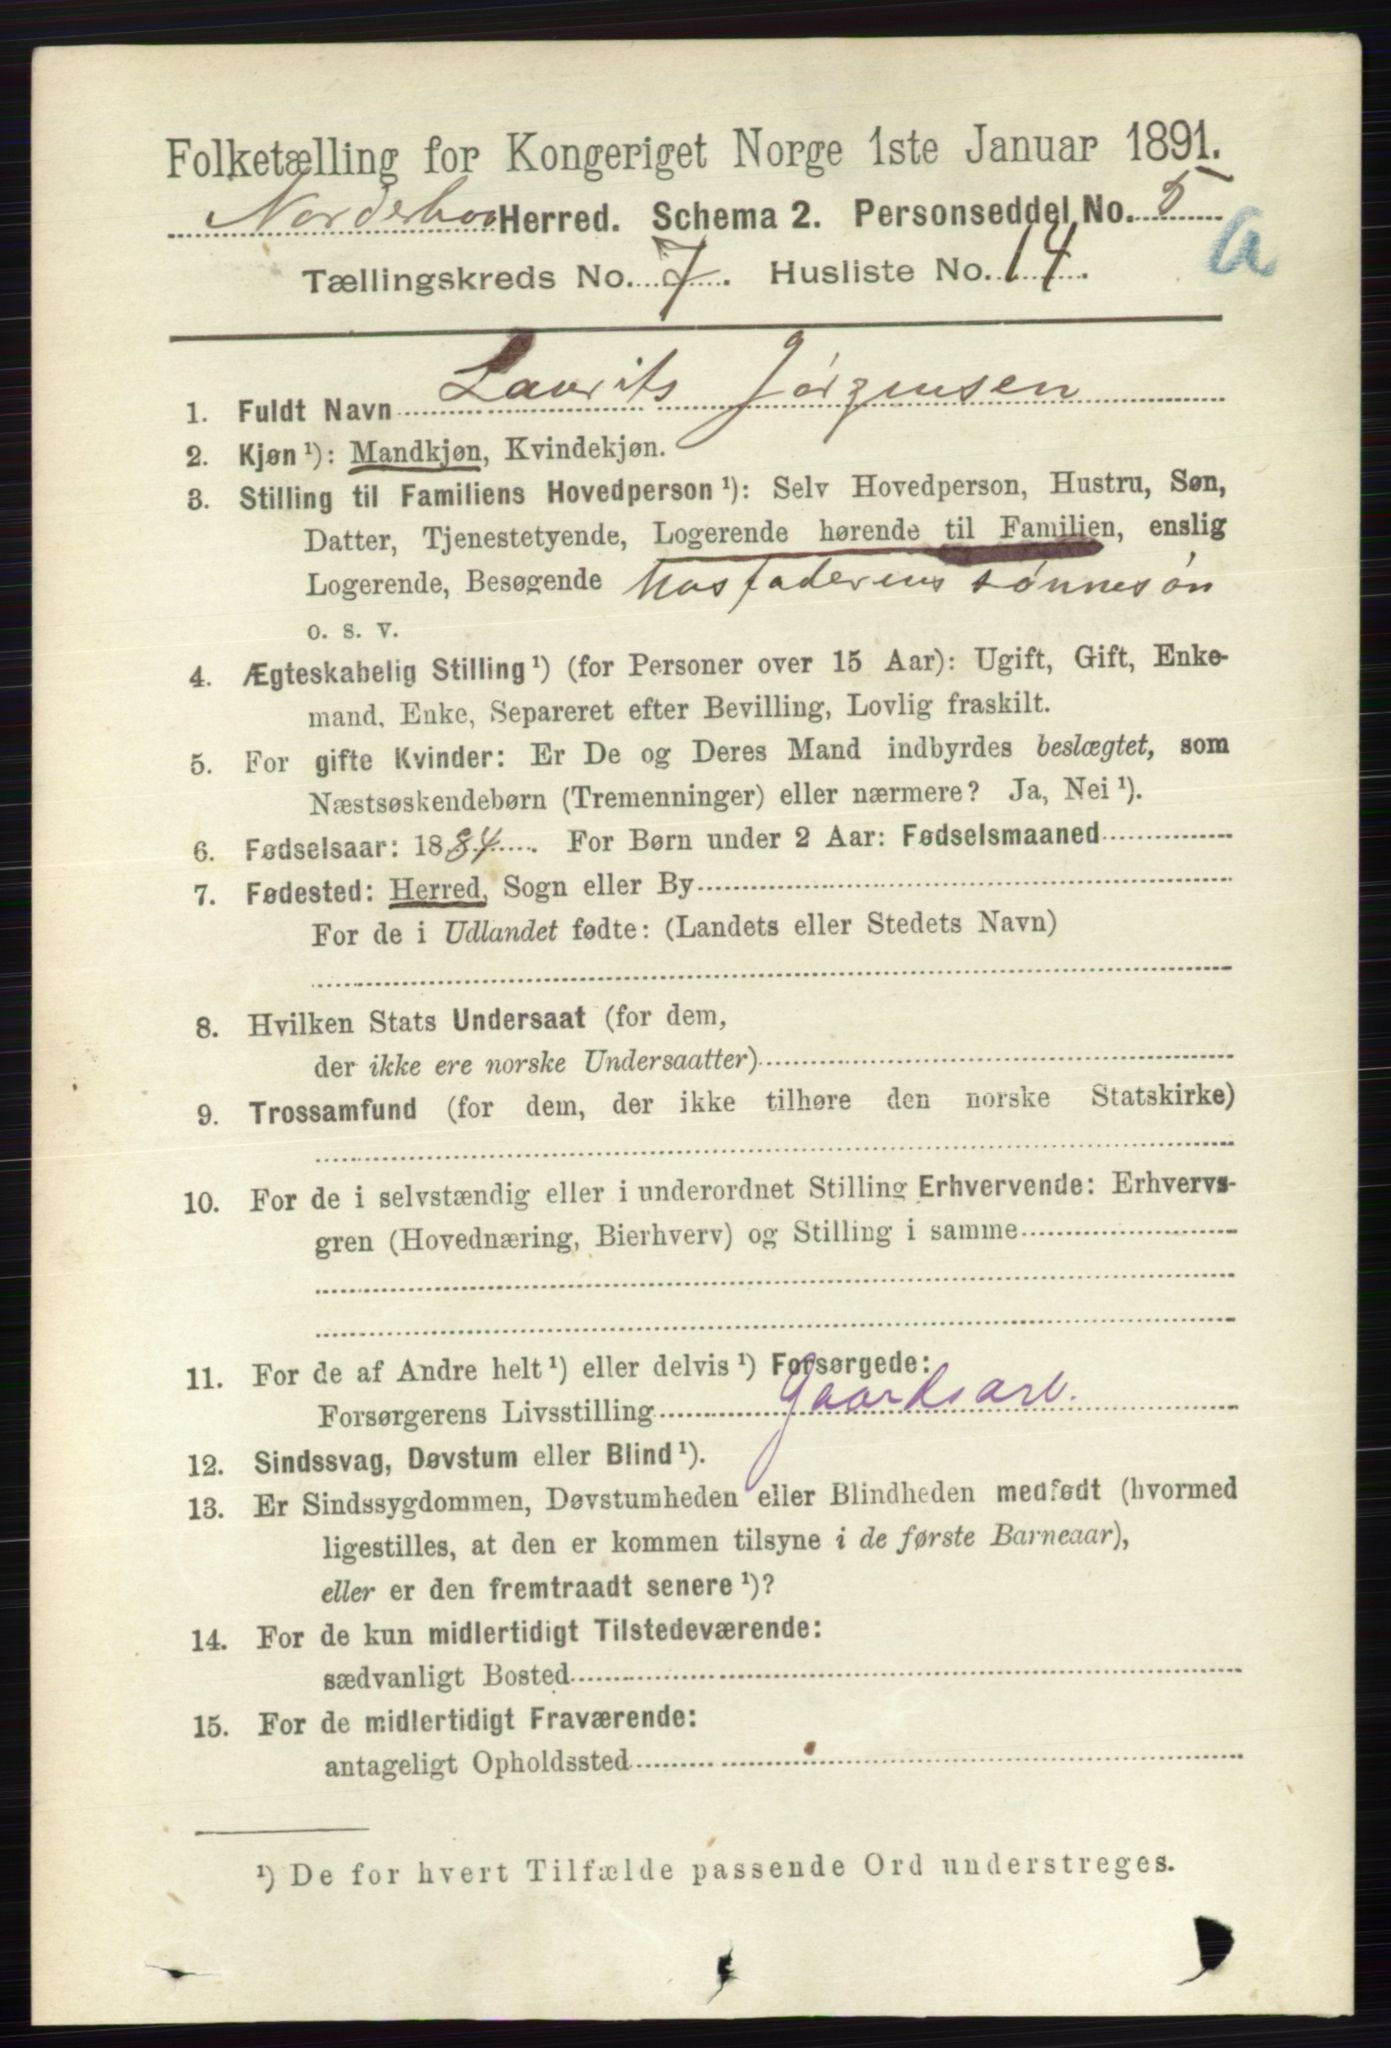 Folketælling for Kongeriget Norge 1ste Januar 1891.
Norderhov Herred. Schema 2. Personseddel No. 5
a
Tællingskreds No. 7. Husliste No. 14.
1. Fuldt Navn Laurits Jörgensen
2. Kjøn ¹): Mandkjøn, Kvindekjøn.
3. Stilling til Familiens Hovedperson ¹): Selv Hovedperson, Hustru, Søn,
Datter, Tjenestetyende, Logerende hørende til Familien, enslig
Logerende, Besøgende Husfaderens sønnesøn
o. s. v.
4. Ægteskabelig Stilling ¹) (for Personer over 15 Aar): Ugift, Gift, Enke-
mand, Enke, Separeret efter Bevilling, Lovlig fraskilt.
5. For gifte Kvinder: Er De og Deres Mand indbyrdes beslægtet, som
Næstsøskendebørn (Tremenninger) eller nærmere? Ja, Nei ¹).
6. Fødselsaar: 1884. For Børn under 2 Aar: Fødselsmaaned
7. Fødested: Herred, Sogn eller By
For de i Udlandet fødte: (Landets eller Stedets Navn)
8. Hvilken Stats Undersaat (for dem,
der ikke ere norske Undersaatter)
9. Trossamfund (for dem, der ikke tilhøre den norske Statskirke)
10. For de i selvstændig eller i underordnet Stilling Erhvervende: Erhvervs-
gren (Hovednæring, Bierhverv) og Stilling i samme
11. For de af Andre helt ¹) eller delvis ¹) Forsørgede:
Forsørgerens Livsstilling Gaardsarb.
12. Sindssvag, Døvstum eller Blind ¹).
13. Er Sindssygdommen, Døvstumheden eller Blindheden medfødt (hvormed
ligestilles, at den er kommen tilsyne i de første Barneaar),
eller er den fremtraadt senere ¹)?
14. For de kun midlertidigt Tilstedeværende:
sædvanligt Bosted
15. For de midlertidigt Fraværende:
antageligt Opholdssted
¹) De for hvert Tilfælde passende Ord understreges.